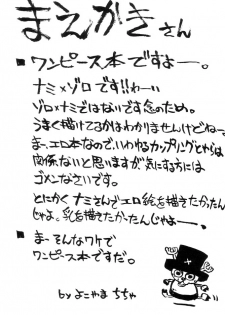 まえがきさん
■ ワンピース本ですよー。
ナミ×ゾロです!!わーい
ゾロ×ナミではないです念のため。
うまく描けてるかはわかりませんけどねー
まー、エロ本なので、いわゆるカップリングとやらは
関係ないと思いますが、気にする方には
ゴメンなさいです。
とにかくナミさんでエロ絵を描きたかったん
じゃよ。乳を描きたかったんじゃよー、
■ まー そんなワケで
ワンピース本ですだ。
by よこやま ちちゃ